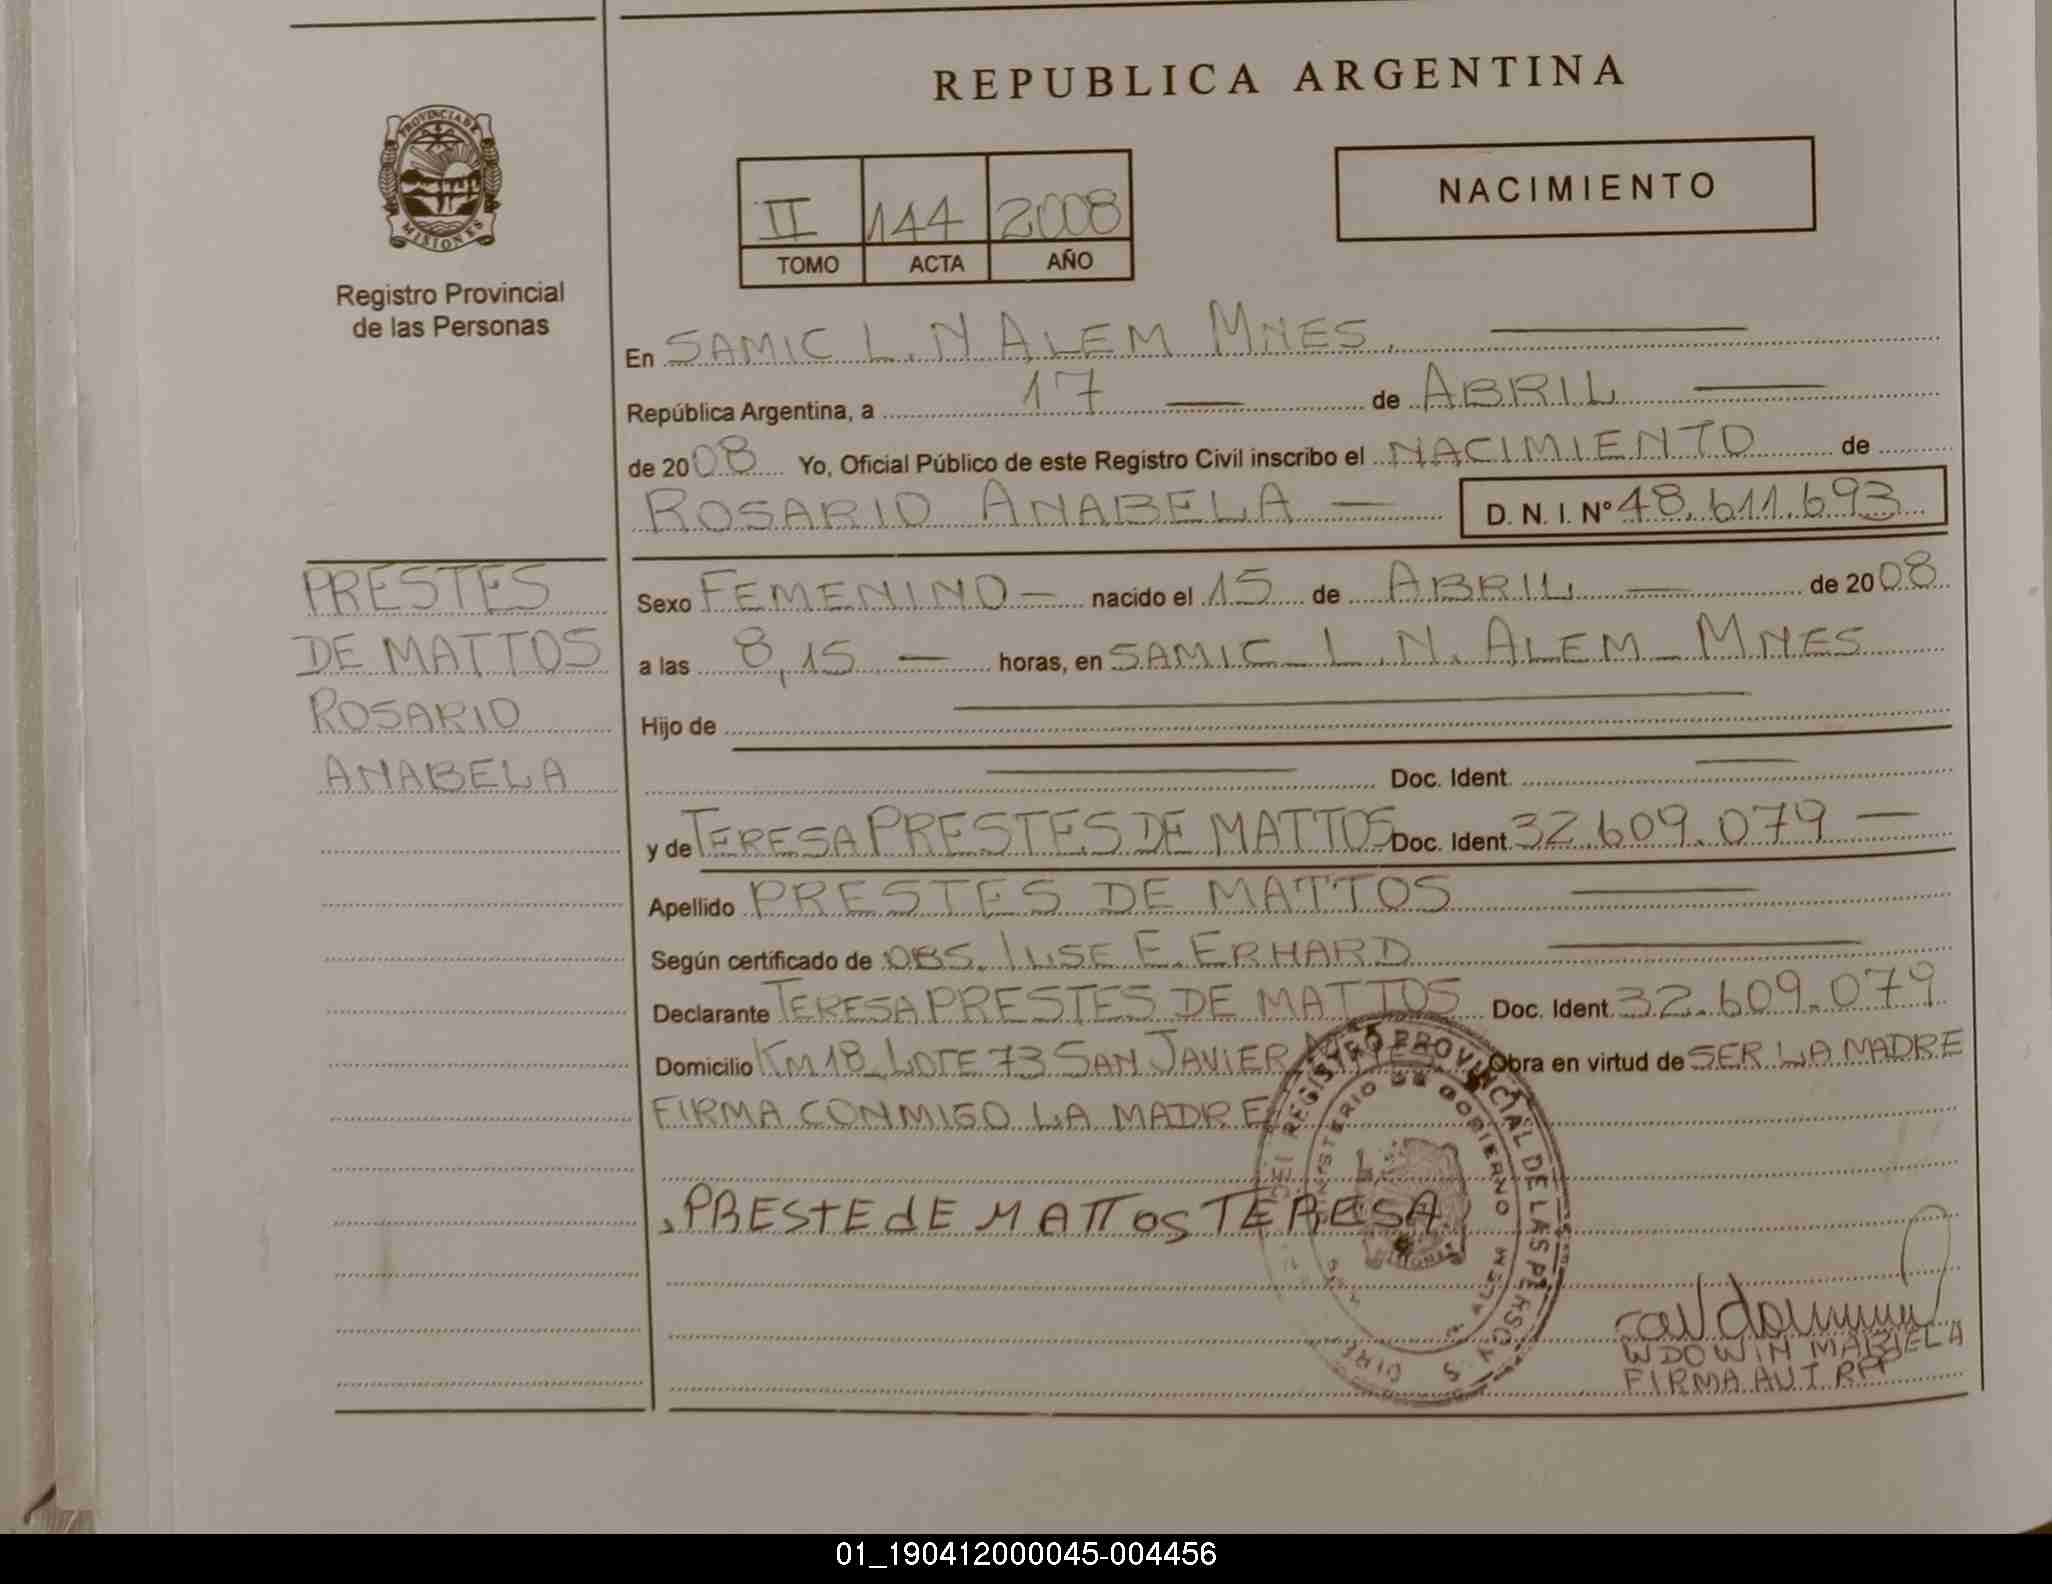 REPUBLICA ARGENTINA
PROVINCIA DE
MISIONES
Registro Provincial
de las Personas
II 144 2008
TOMO ACTA AÑO
NACIMIENTO
En SAMIC L. N ALEM MNES.
República Argentina, a 17 de ABRIL
de 2008 Yo, Oficial Público de este Registro Civil inscribo el NACIMIENTO de
ROSARIO ANABELA D. N. I. Nº 48.611.693
PRESTES
DE MATTOS
ROSARIO
ANABELA
Sexo FEMENINO nacido el 15 de ABRIL de 2008
a las 8,15 horas, en SAMIC L.N. ALEM MNES
Hijo de
Doc. Ident.
y de TERESA PRESTES DE MATTOS Doc. Ident. 32.609.079
Apellido PRESTES DE MATTOS
Según certificado de OBS. ILSE E. ERHARD
Declarante TERESA PRESTES DE MATTOS Doc. Ident. 32.609.079
Domicilio KM 18 LOTE 73 SAN JAVIER MNES Obra en virtud de SER LA MADRE
FIRMA CONMIGO LA MADRE
PRESTE dE MATTOS TERESA
REGISTRO PROVINCIAL DE LAS PERSONAS
MINISTERIO DE GOBIERNO
ALEM
WDOWIN MARIELA
FIRMA AUT RPP
01_190412000045-004456